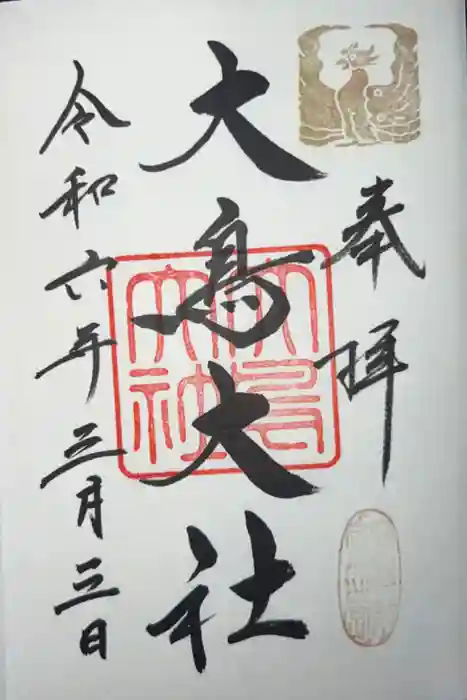 奉拝
大鳥大社
大鳥大社
令和六年三月三日